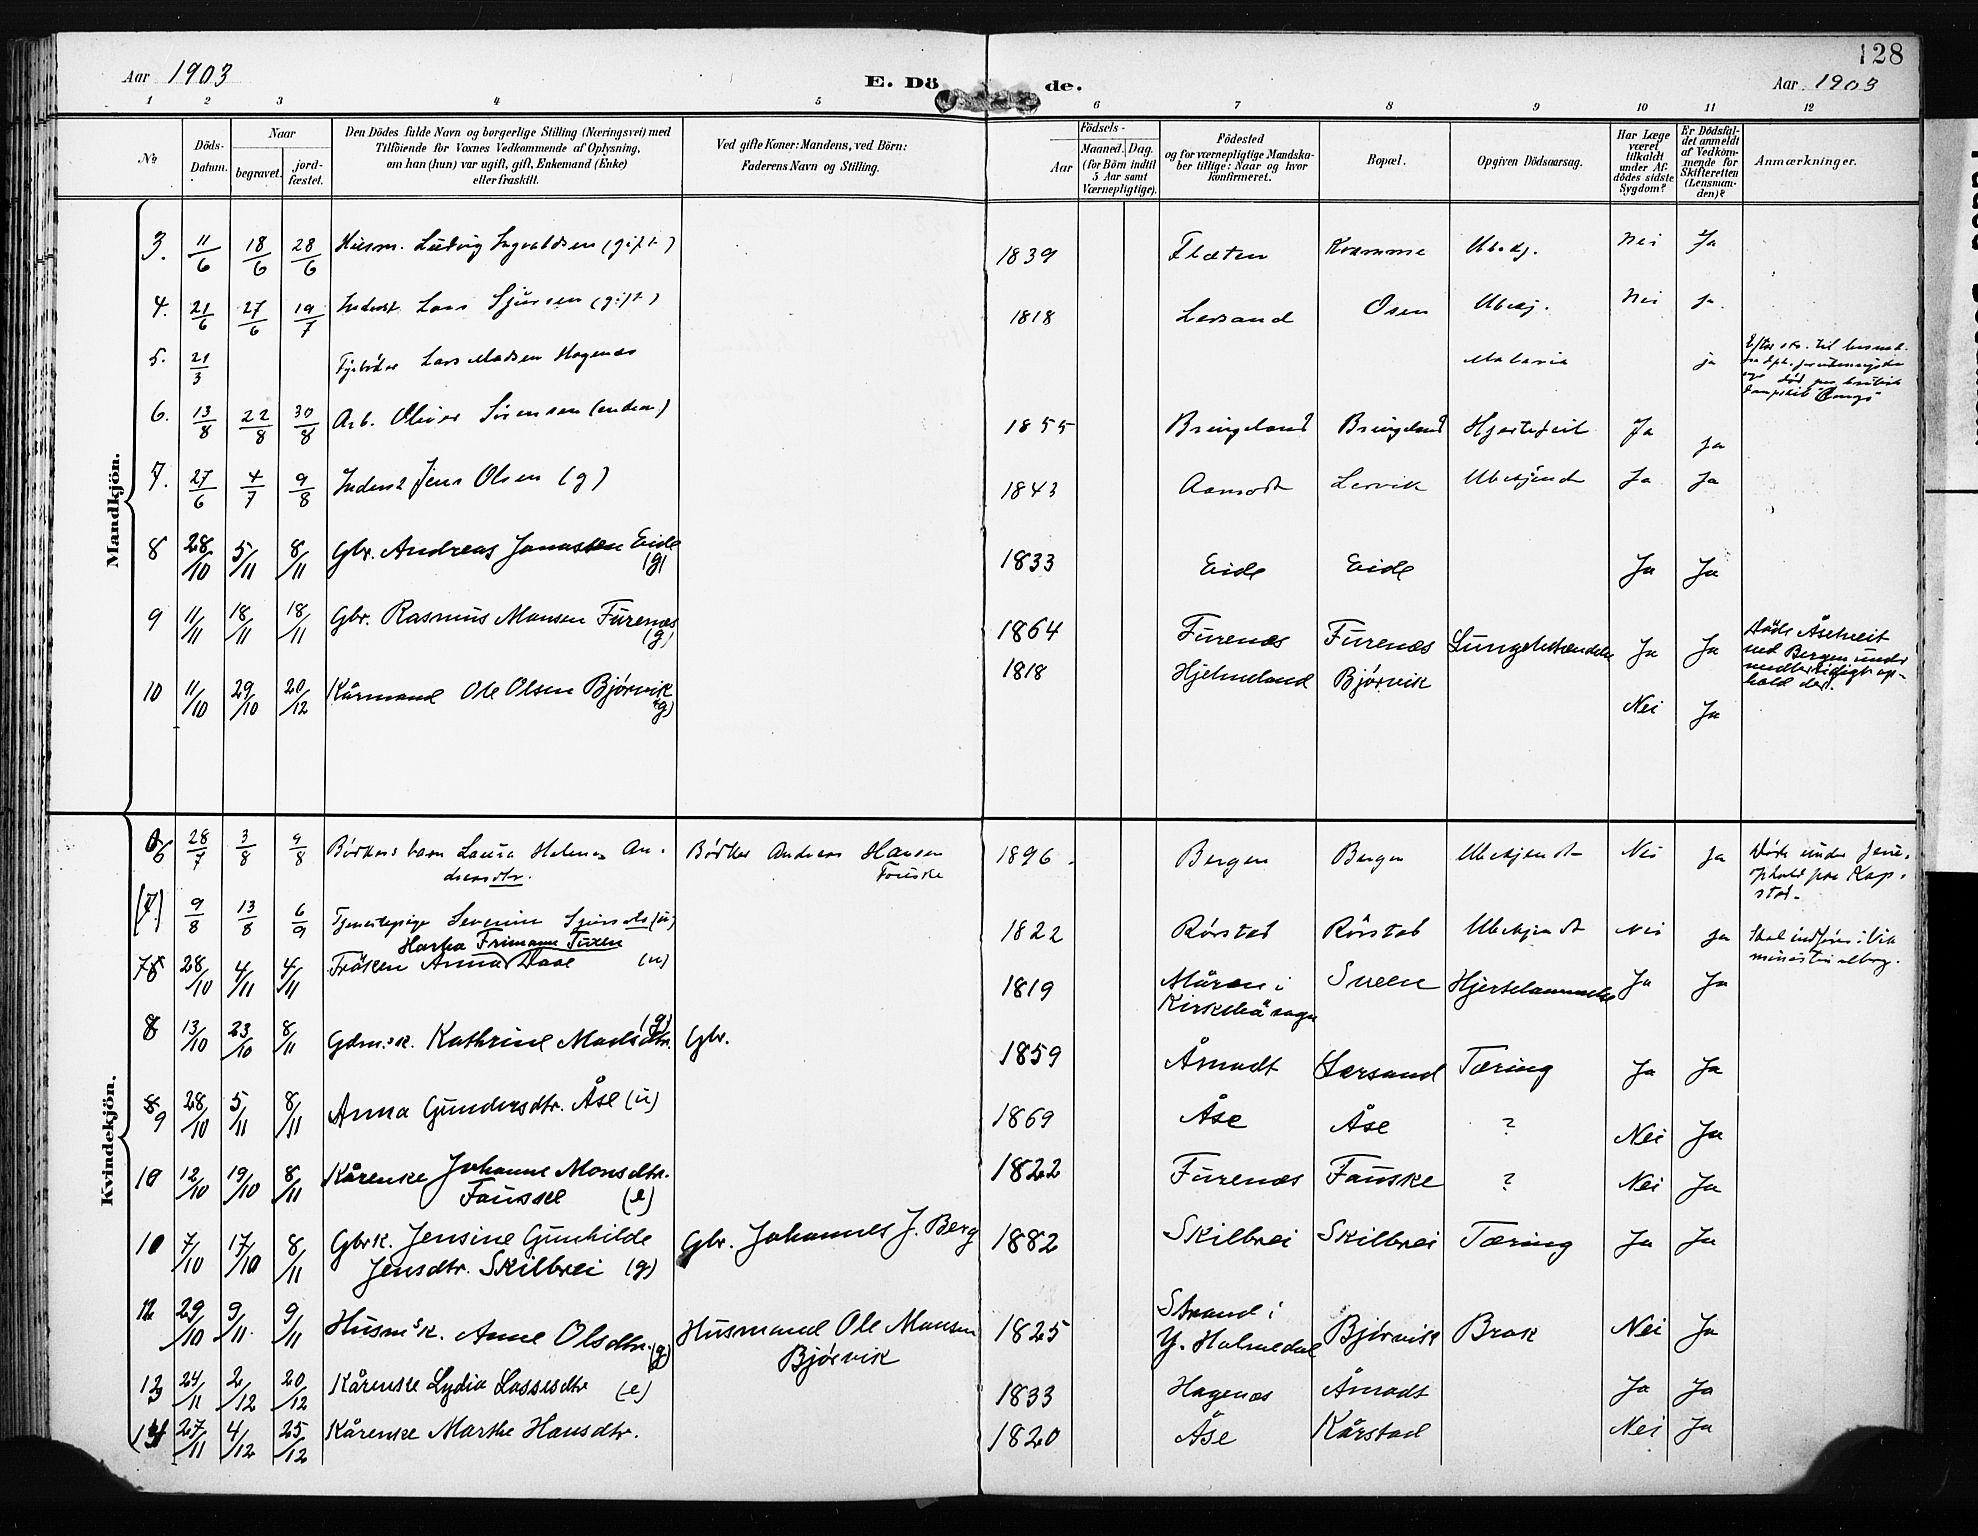 128
Aar 1903 E. Dö de. Aar 1903
1 2 3 4 5 6 7 8 9 10 11 12
№ Döds-Datum. Naar begravet. jord-fæstet. Den Dödes fulde Navn og borgerlige Stilling (Næringsvei) med Tilföiende for Voxnes Vedkommende af Oplysning, om han (hun) var ugift, gift, Enkemand (Enke) eller fraskilt. Ved gifte Koner: Mandens, ved Börn: Faderens Navn og Stilling. Födsels- Aar Maaned. Dag. (for Börn indtil 5 Aar samt Værnepligtige). Födested og for værnepligtige Mandska-ber tillige: Naar og hvor konfirmeret. Bopæl. Opgiven Dödsaarsag. Har Læge været tilkaldt under Af-dödes sidste Sygdom? Er Dödsfal-det anmeldt af Vedkom-mende for Skifteretten (Lensman-den)? Anmærkninger.
Mandkjön.
3. 11/6 18/6 28/6 Husm. Ludvig Ingvaldsen (gift) 1839 Flæten Kvamme Ubekj. Nei Ja
4. 21/6 27/6 19/7 Inderst Lars Sjursen (gift) 1818 Lersand Osen Ubekj. Nei ja
5. 21/3 Lars Madsen Hagenæs Malaria ja
6. 13/8 22/8 30/8 Arb. Oliver Sörensen 1855 Bringeland Bringeland Hjertefeil Ja ja
7. 27/6 4/7 9/8 Inderst Jens Olsen (g) 1843 Aamodt Lervik Ubekjendt Ja Ja
8 28/10 5/11 8/11 Gbr. Andreas Jonassen Eide (g) 1833 Eide Eide Ja Ja
9 11/11 18/11 18/11 Gbr. Rasmus Monsen Furenæs (g) 1864 Furenæs Furenæs Lungebetændelse Ja Ja Döde Åstveit ved Bergen under midlertidigt op-hold der.
10 11/10 29/10 20/12 Kårmand Ole Olsen Bjørvik (g) 1818 Hjelmeland Bjørvik Nei Ja
Kvindekjön.
6 28/7 3/8 9/8 Bødkers barn Laura Helene An-dreasdtr. Bødker Andreas Hansen Fauske 1896 Bergen Bergen Ubekjendt Nei Ja
(7) 9/8 13/8 6/9 Tjenestepige Severine Sjursdtr (u) 1822 Rörstad Rörstad Ubekjendt Nei ja Skal indföres i Vik ministerialbog.
Hartva Frimann Tuxen
7 28/10 4/11 4/11 Fröken Anna Daae (u) 1819 Måren i Kirkebö sogn Sveen Hjertelammelse Ja Ja
8 13/10 23/10 8/11 Gdm.sk. Kathrine Madsdtr. (g) Gbr. 1859 Åmodt Lersand Tæring Ja Ja
9 28/10 5/11 8/11 Anna Gundersdtr. Åse (u) 1869 Åse Åse ? Nei Ja
10 12/10 19/10 8/11 Kårenke Johanne Monsdtr. Fauske (e) 1822 Furenæs Fauske ? Nei Ja
10 7/10 17/10 8/11 Gbrk. Jensine Gunhilde Jensdtr. Skilbrei (g) Gbr. Johannes J. Berg 1882 Skilbrei Skilbrei Tæring Ja Ja
12 29/10 9/11 9/11 Husmsk. Anne Olsdtr. (g) Husmand Ole Monsen Bjørvik 1825 Strand i Y. Holmedal Bjørvik Brok Nei Ja
13 24/11 2/12 20/12 Kårenke Lydia Lassesdtr (e) 1833 Hagenæs Åmodt Ja Ja
14 27/11 4/12 25/12 Kårenke Marthe Hansdtr. 1820 Åse Kårstad Nei Ja